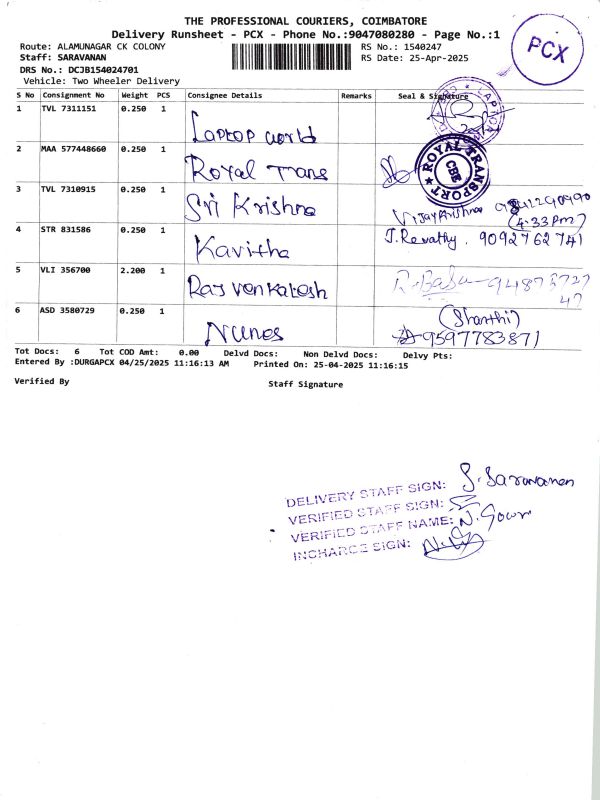 THE PROFESSIONAL COURIERS, COIMBATORE
Delivery Runsheet - PCX - Phone No.:9047080280 - Page No.:1
Route: ALAMUNAGAR CK COLONY
RS No.: 1540247
Staff: SARAVANAN
RS Date: 25-Apr-2025
DRS No.: DCJB154024701
Vehicle: Two Wheeler Delivery
PCX
S No Consignment No Weight PCS Consignee Details Remarks Seal & Signature
1 TVL 7311151 0.250 1 Laptop world
2 MAA 577448660 0.250 1 Royal Trans
ROYAL TRANSPORT CBE
3 TVL 7310915 0.250 1 Sri Krishna Vijaykrishna
(4.33pm)
4 STR 831586 0.250 1 Kavitha J.Revathy. 9092762741
5 VLI 356700 2.200 1 Raj venkatesh R.Babu-9487372747
6 ASD 3580729 0.250 1 Nunes (Shanthi)
9597783871
Tot Docs: 6 Tot COD Amt: 0.00 Delvd Docs: Non Delvd Docs: Delvy Pts:
Entered By :DURGAPCX 04/25/2025 11:16:13 AM Printed On: 25-04-2025 11:16:15
Verified By Staff Signature
DELIVERY STAFF SIGN: S.Saravanan
VERIFIED STAFF SIGN:
VERIFIED STAFF NAME: N.Gowri
INCHARGE SIGN: